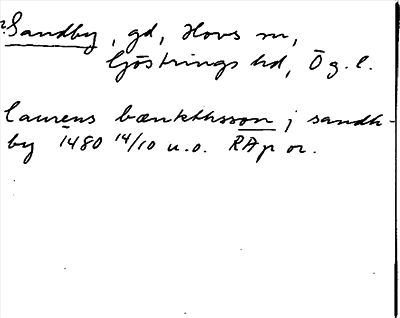 Sandby, gd, Hovs sn,
Göstrings hd, Ög. l.
laurens bænkthsson j sandh-
by 1480 14/10 u.o. RAp or.